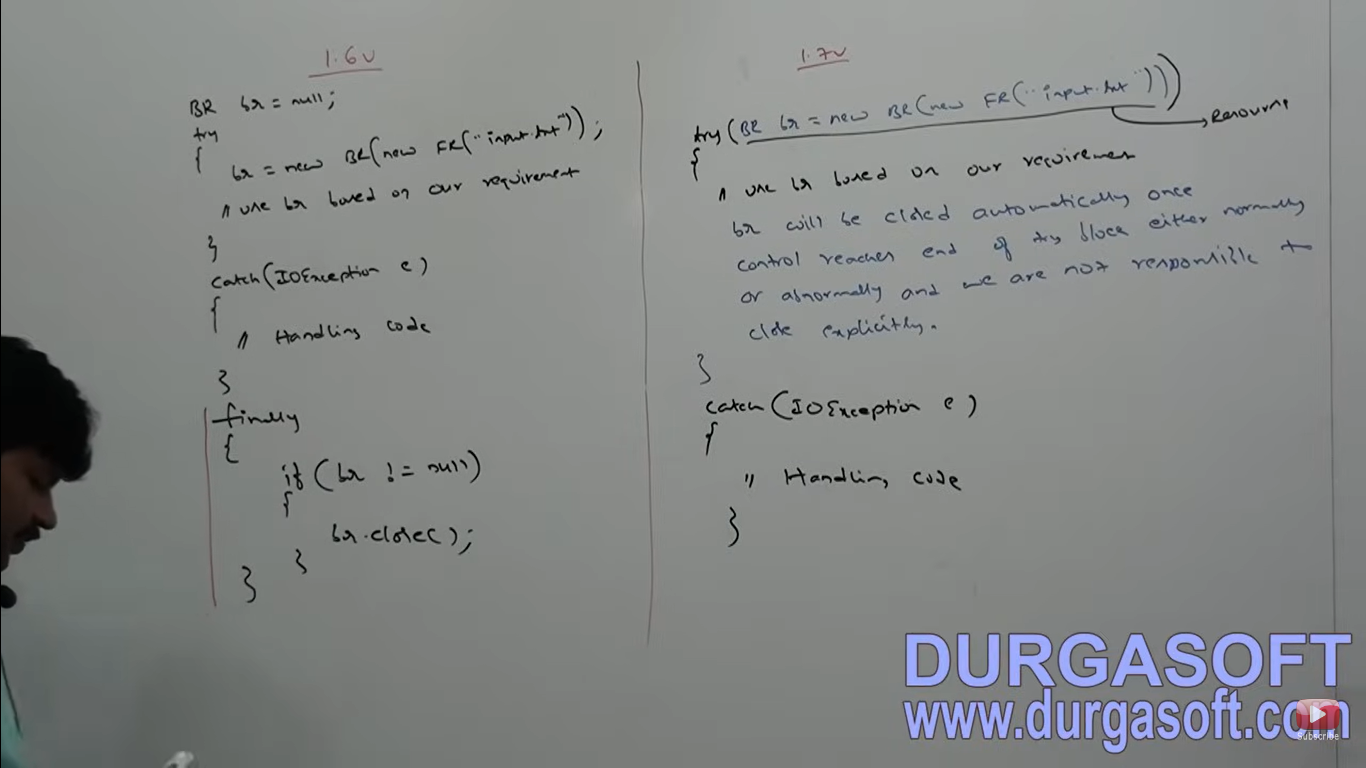 1.6v
BR br = null;
try
{
br = new BR(new FR("input.txt"));
// use br based on our requirement
}
catch(IOException e)
{
// Handling code
}
finally
{
if (br != null)
{
br.close();
}
}
1.7v
try(BR br = new BR(new FR("input.txt")))
Resource
{
// use br based on our requirement
br will be closed automatically once
control reaches end of try block either normally
or abnormally and we are not responsible to
close explicitly.
}
catch(IOException e)
{
// Handling code
}
DURGASOFT
www.durgasoft.com
Subscribe